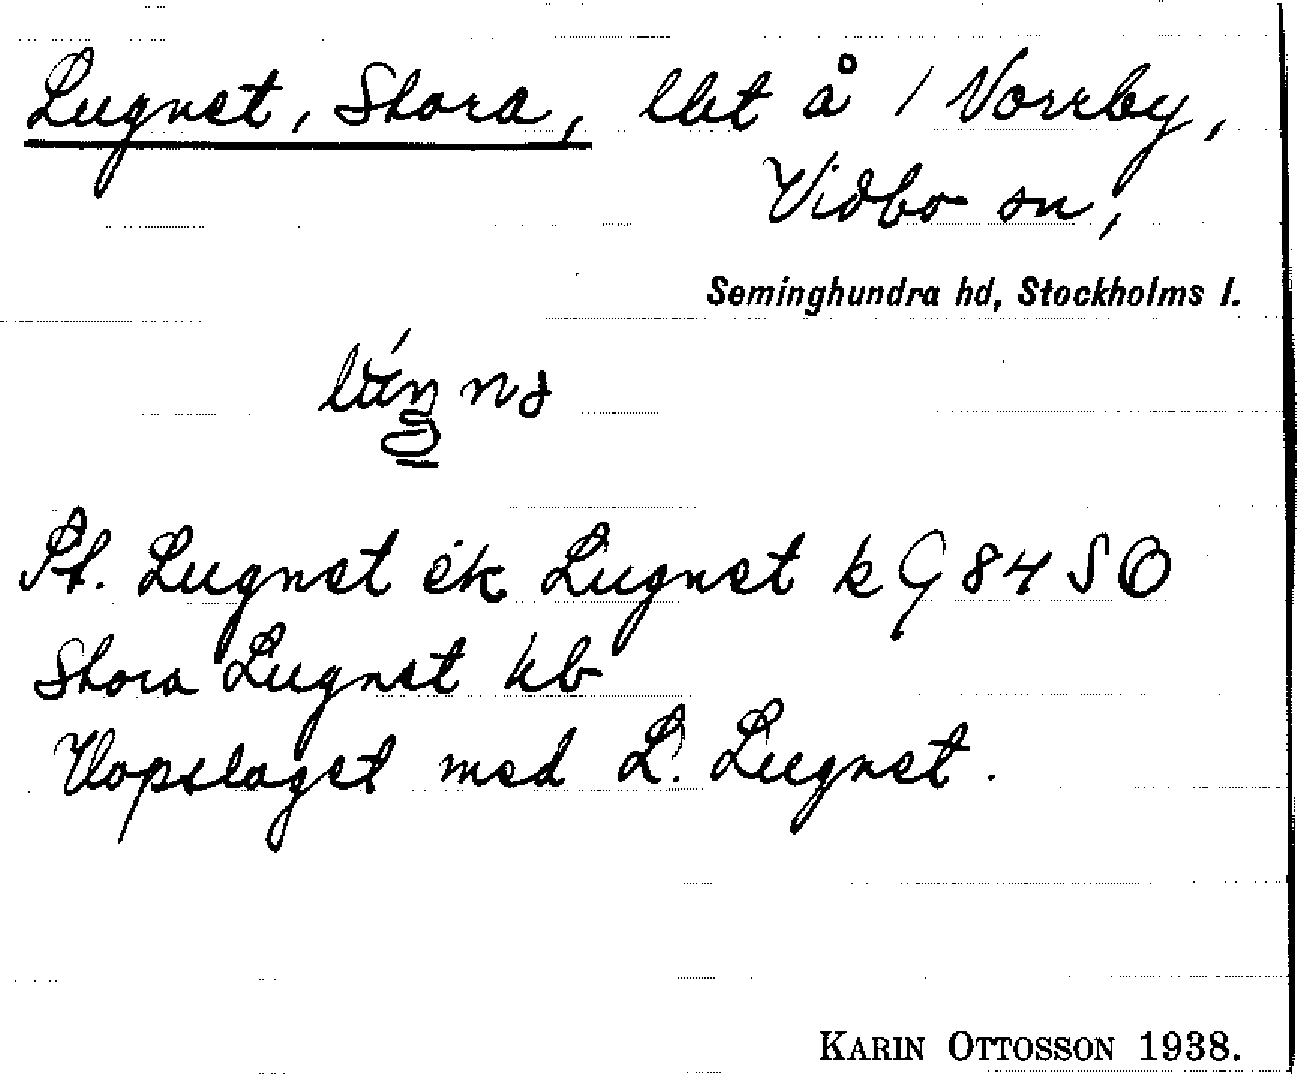 Lugnet, Stora, lht å 1 Vorrby,
Vidbo sn,
Seminghundra hd, Stockholms l.
St. Lugnet ek Lugnet k G 84 SO
Stora Lugnet kb
Uppslaget med L. Lugnet.
KARIN OTTOSSON 1938.